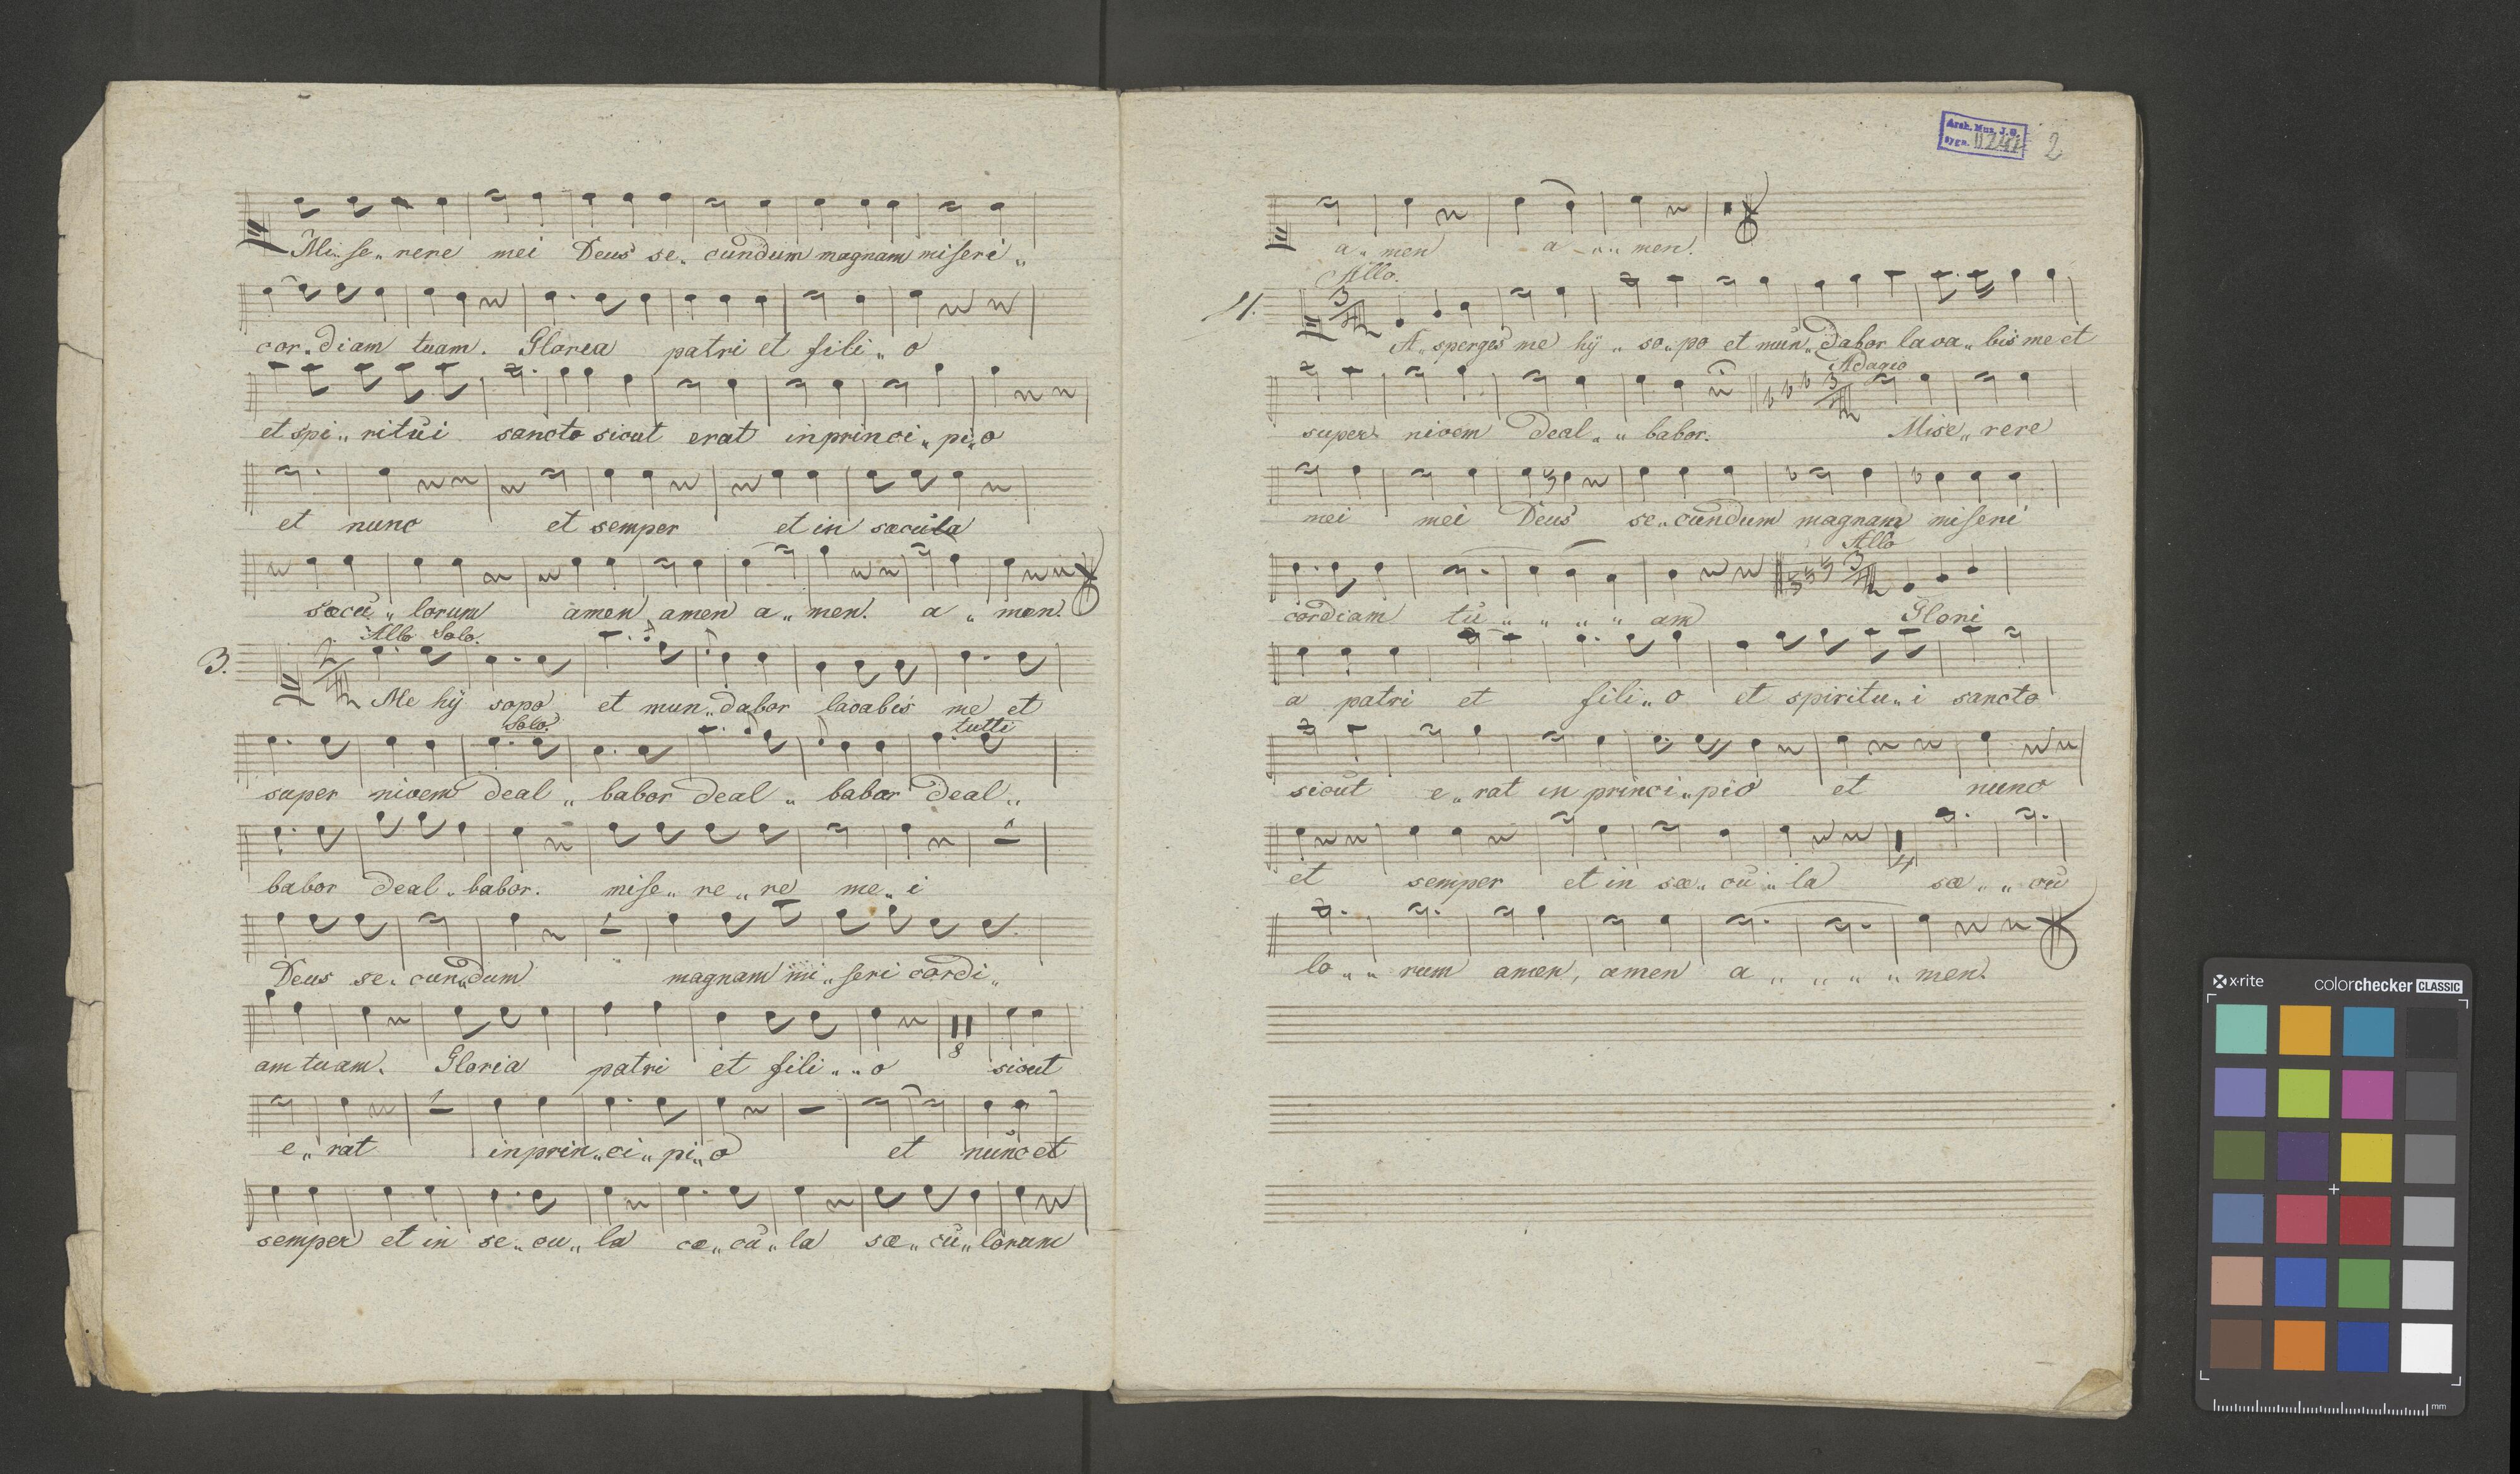 Mi„se„rere mei Deus se„cundum magnam miseri„
cor„diam tuam. Gloria patri et fili„o
et spi„ritui sancto sicut erat in princi„pi„o
et nunc et semper et in sæcula
sæcu„lorum amen amen a„men. a„men.
3. Allo Solo.
Me hÿ sopo et mun„dabor lavabis me et
Solo. tutti
super nivem deal„babor deal„babor deal„
babor deal„babor. mise„re„re me„i
Deus se„cun„dum magnam mi„seri cordi„
am tuam. Gloria patri et fili„„o sicut
8
e„rat in prin„ci„pi„o et nunc et
semper et in se„cu„la cæ„cu„la sæ„cu„lorum
Arch. Mus. J.G.
sygn. 2
a„men a„„men.
Allo.
4.
A„sperges me hÿ„so„po et mun„dabor lava„bis me et
Adagio
super nivem deal„„babor. Mise„rere
mei mei Deus se„cundum magnam miseri
Allo
cordiam tu„„„„am Glori
a patri et fili„o et spiritu„i sancto
sicut e„rat in princi„pio et nunc
4
et semper et in sæ„cu„la sæ„„cu
lo„„rum amen, amen a„„„„men.
x·rite colorchecker CLASSIC
mm